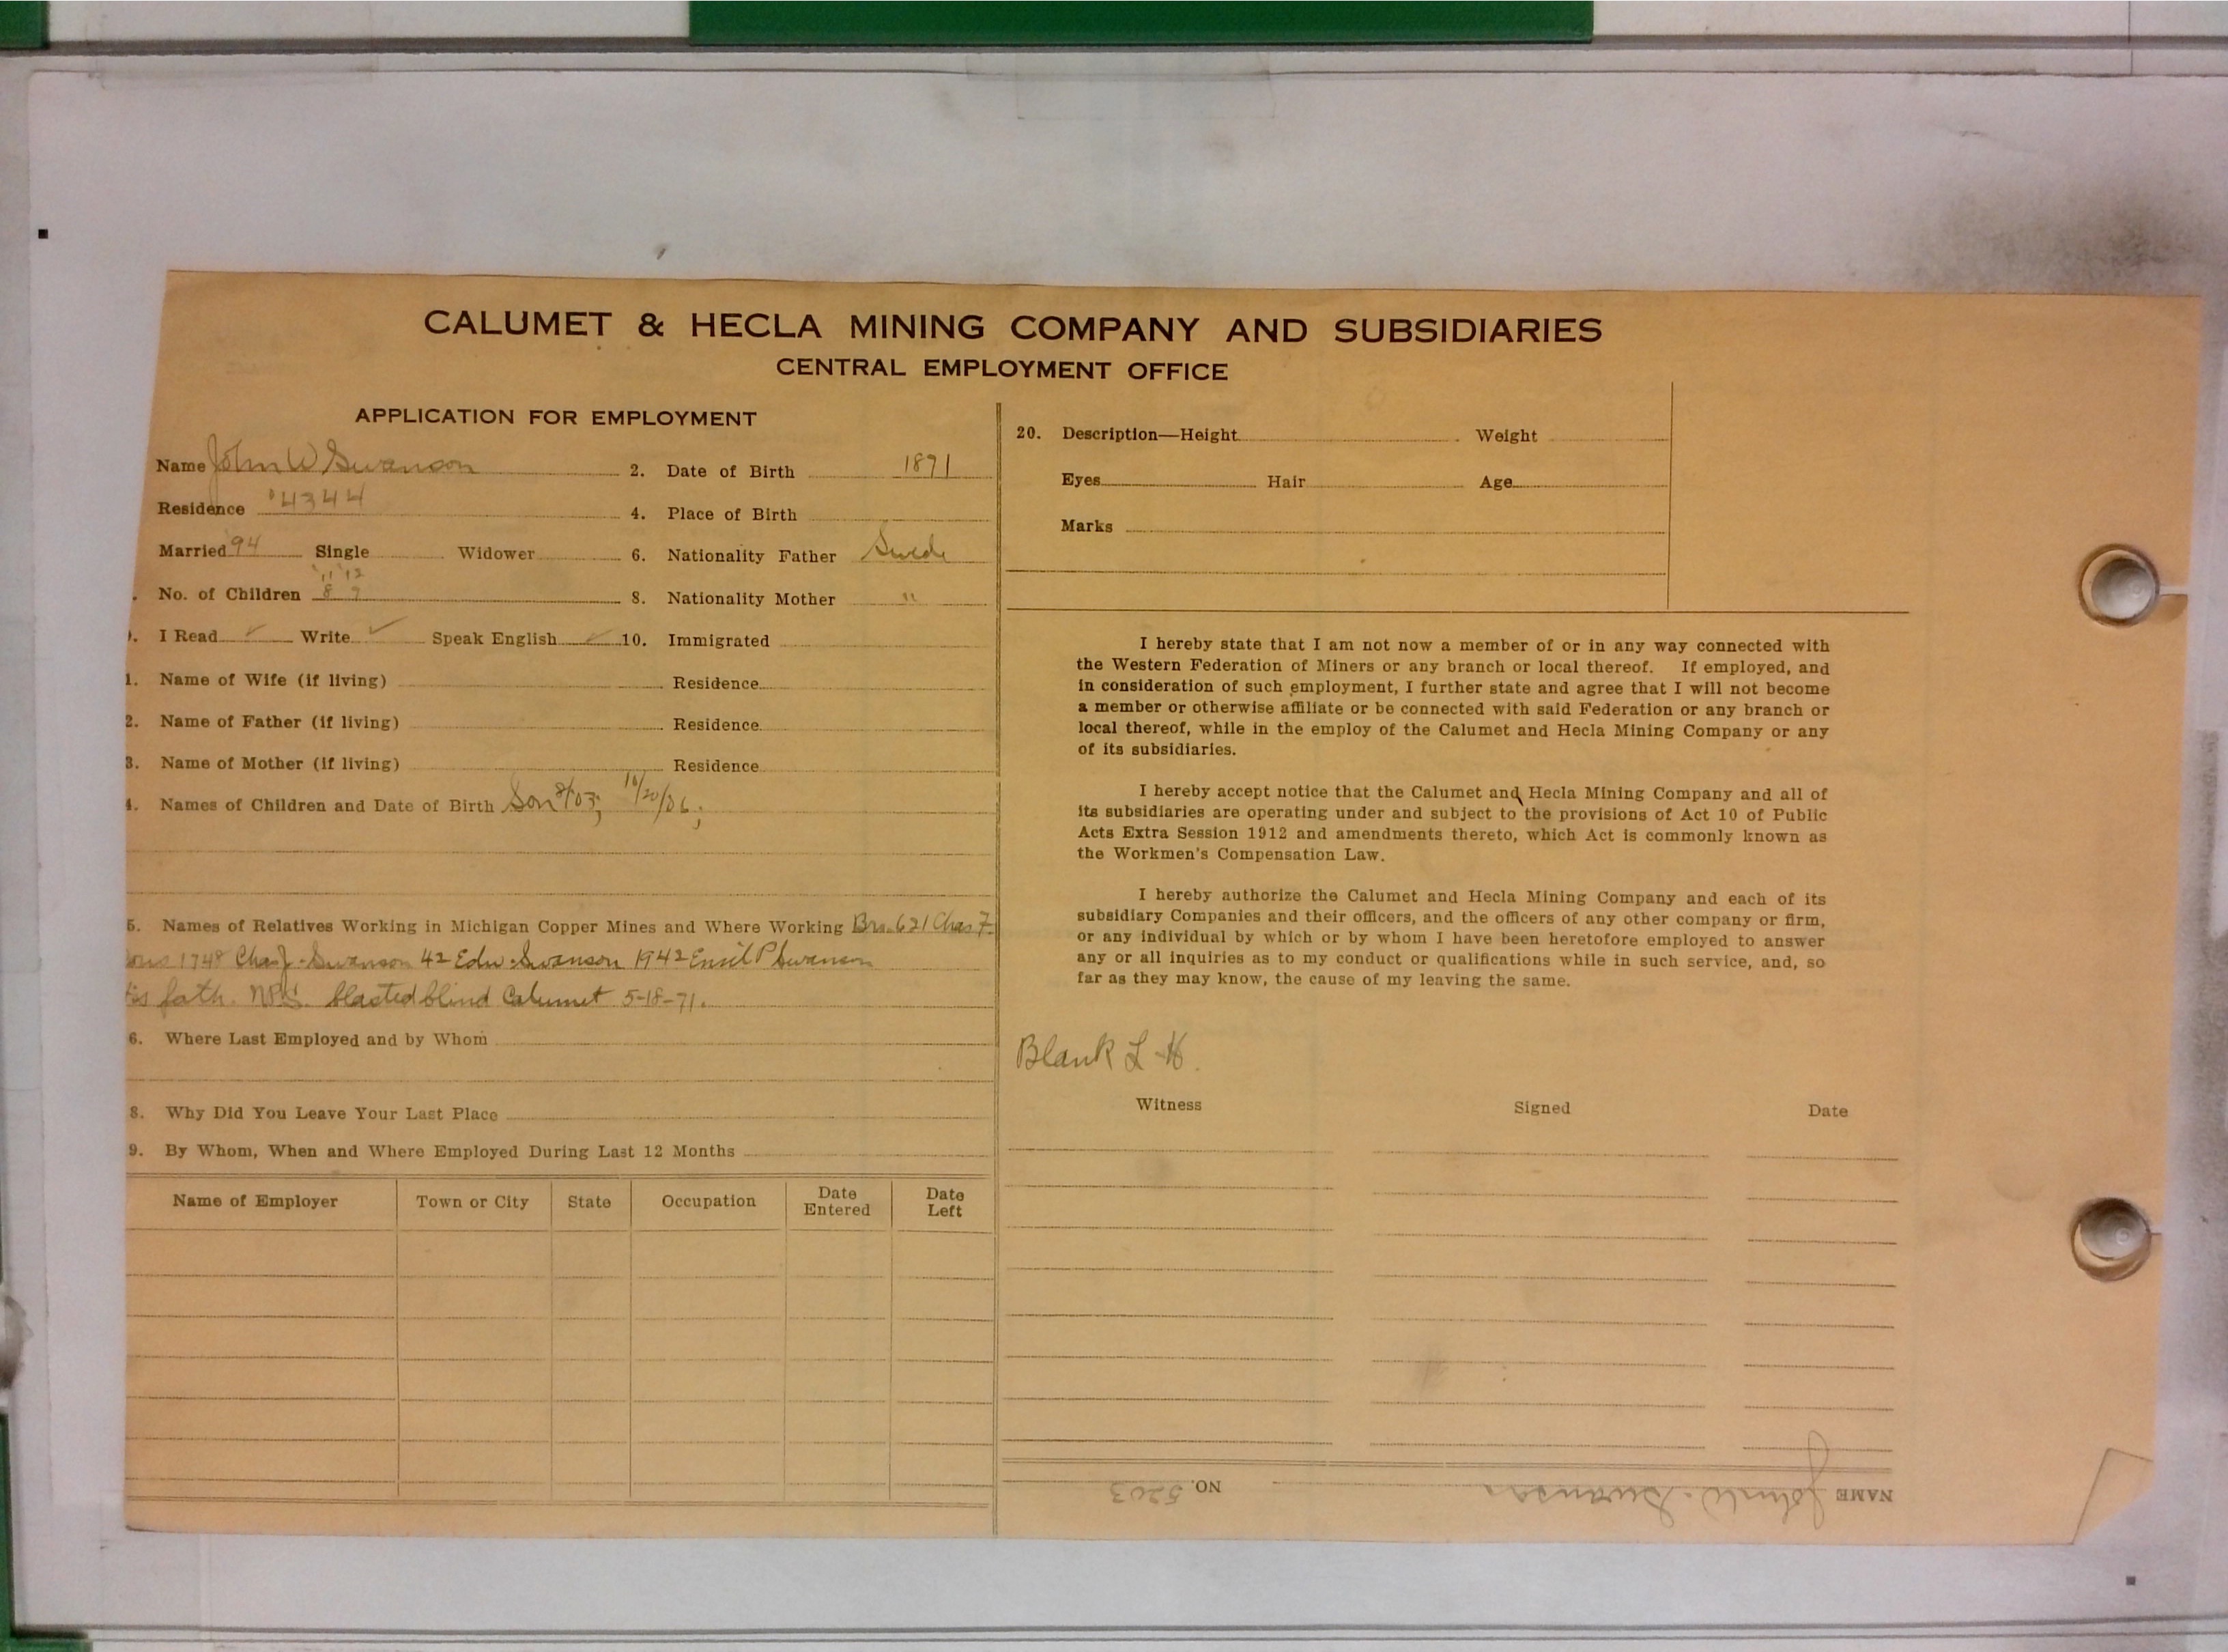 CALUMET & HECLA MINING COMPANY AND SUBSIDIARIES
CENTRAL EMPLOYMENT OFFICE
APPLICATION FOR EMPLOYMENT
Name John W Swanson 2. Date of Birth 1871
Residence 4344 4. Place of Birth
Married '94 Single Widower 6. Nationality Father Swede
'11 '12
No. of Children 8 9 8. Nationality Mother "
I Read ✓ Write ✓ Speak English ✓ 10. Immigrated
1. Name of Wife (if living) Residence
2. Name of Father (if living) Residence
3. Name of Mother (if living) Residence
4. Names of Children and Date of Birth Son 8/03; 10/20/06;
5. Names of Relatives Working in Michigan Copper Mines and Where Working Bro. 621 Chas F
sons 1748 Chas J. Swanson 42 Edw. Swanson 1942 Emil P Swanson
His fath. blasted blind Calumet 5-18-71.
6. Where Last Employed and by Whom
8. Why Did You Leave Your Last Place
9. By Whom, When and Where Employed During Last 12 Months
Name of Employer Town or City State Occupation Date Entered Date Left
20. Description—Height Weight
Eyes Hair Age
Marks
I hereby state that I am not now a member of or in any way connected with
the Western Federation of Miners or any branch or local thereof. If employed, and
in consideration of such employment, I further state and agree that I will not become
a member or otherwise affiliate or be connected with said Federation or any branch or
local thereof, while in the employ of the Calumet and Hecla Mining Company or any
of its subsidiaries.
I hereby accept notice that the Calumet and Hecla Mining Company and all of
its subsidiaries are operating under and subject to the provisions of Act 10 of Public
Acts Extra Session 1912 and amendments thereto, which Act is commonly known as
the Workmen's Compensation Law.
I hereby authorize the Calumet and Hecla Mining Company and each of its
subsidiary Companies and their officers, and the officers of any other company or firm,
or any individual by which or by whom I have been heretofore employed to answer
any or all inquiries as to my conduct or qualifications while in such service, and, so
far as they may know, the cause of my leaving the same.
Blank L H.
Witness Signed Date
NAME John W. Swanson NO. 5203